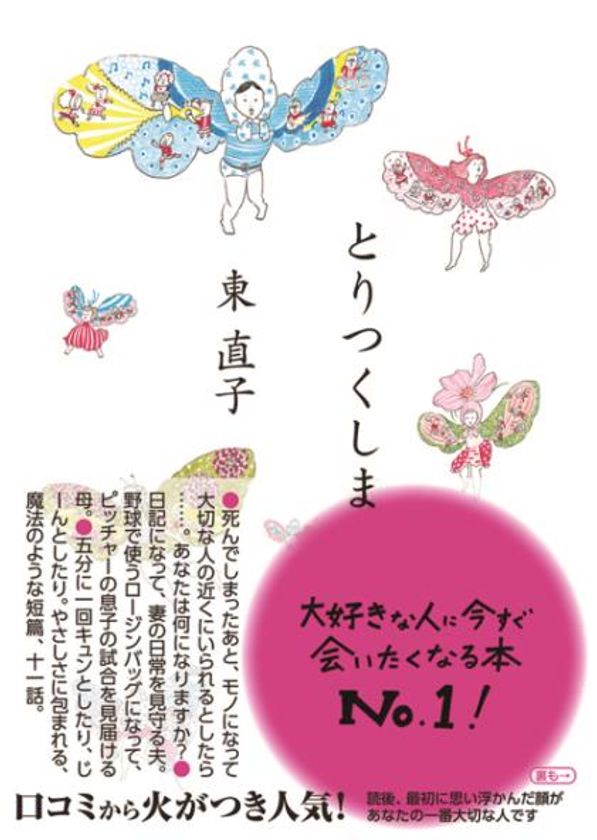 とりつくしま
東 直子
●死んでしまったあと、モノになって
大切な人の近くにいられるとしたら
……。あなたは何になりますか？●
日記になって、妻の日常を見守る夫。
野球で使うロージンバッグになって、
ピッチャーの息子の試合を見届ける
母。●五分に一回キュンとしたり、じ
ーんとしたり。やさしさに包まれる、
魔法のような短篇、十一話。
大好きな人に今すぐ
会いたくなる本
No.1！
裏も→
口コミから火がつき人気！
読後、最初に思い浮かんだ顔が
あなたの一番大切な人です